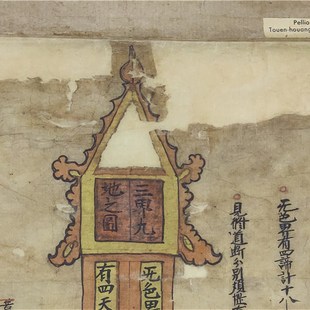 Pellio
Touen-houang
无色界有四諦計十八
見脩道断分別
三界九
地之圖
无色界
有四天